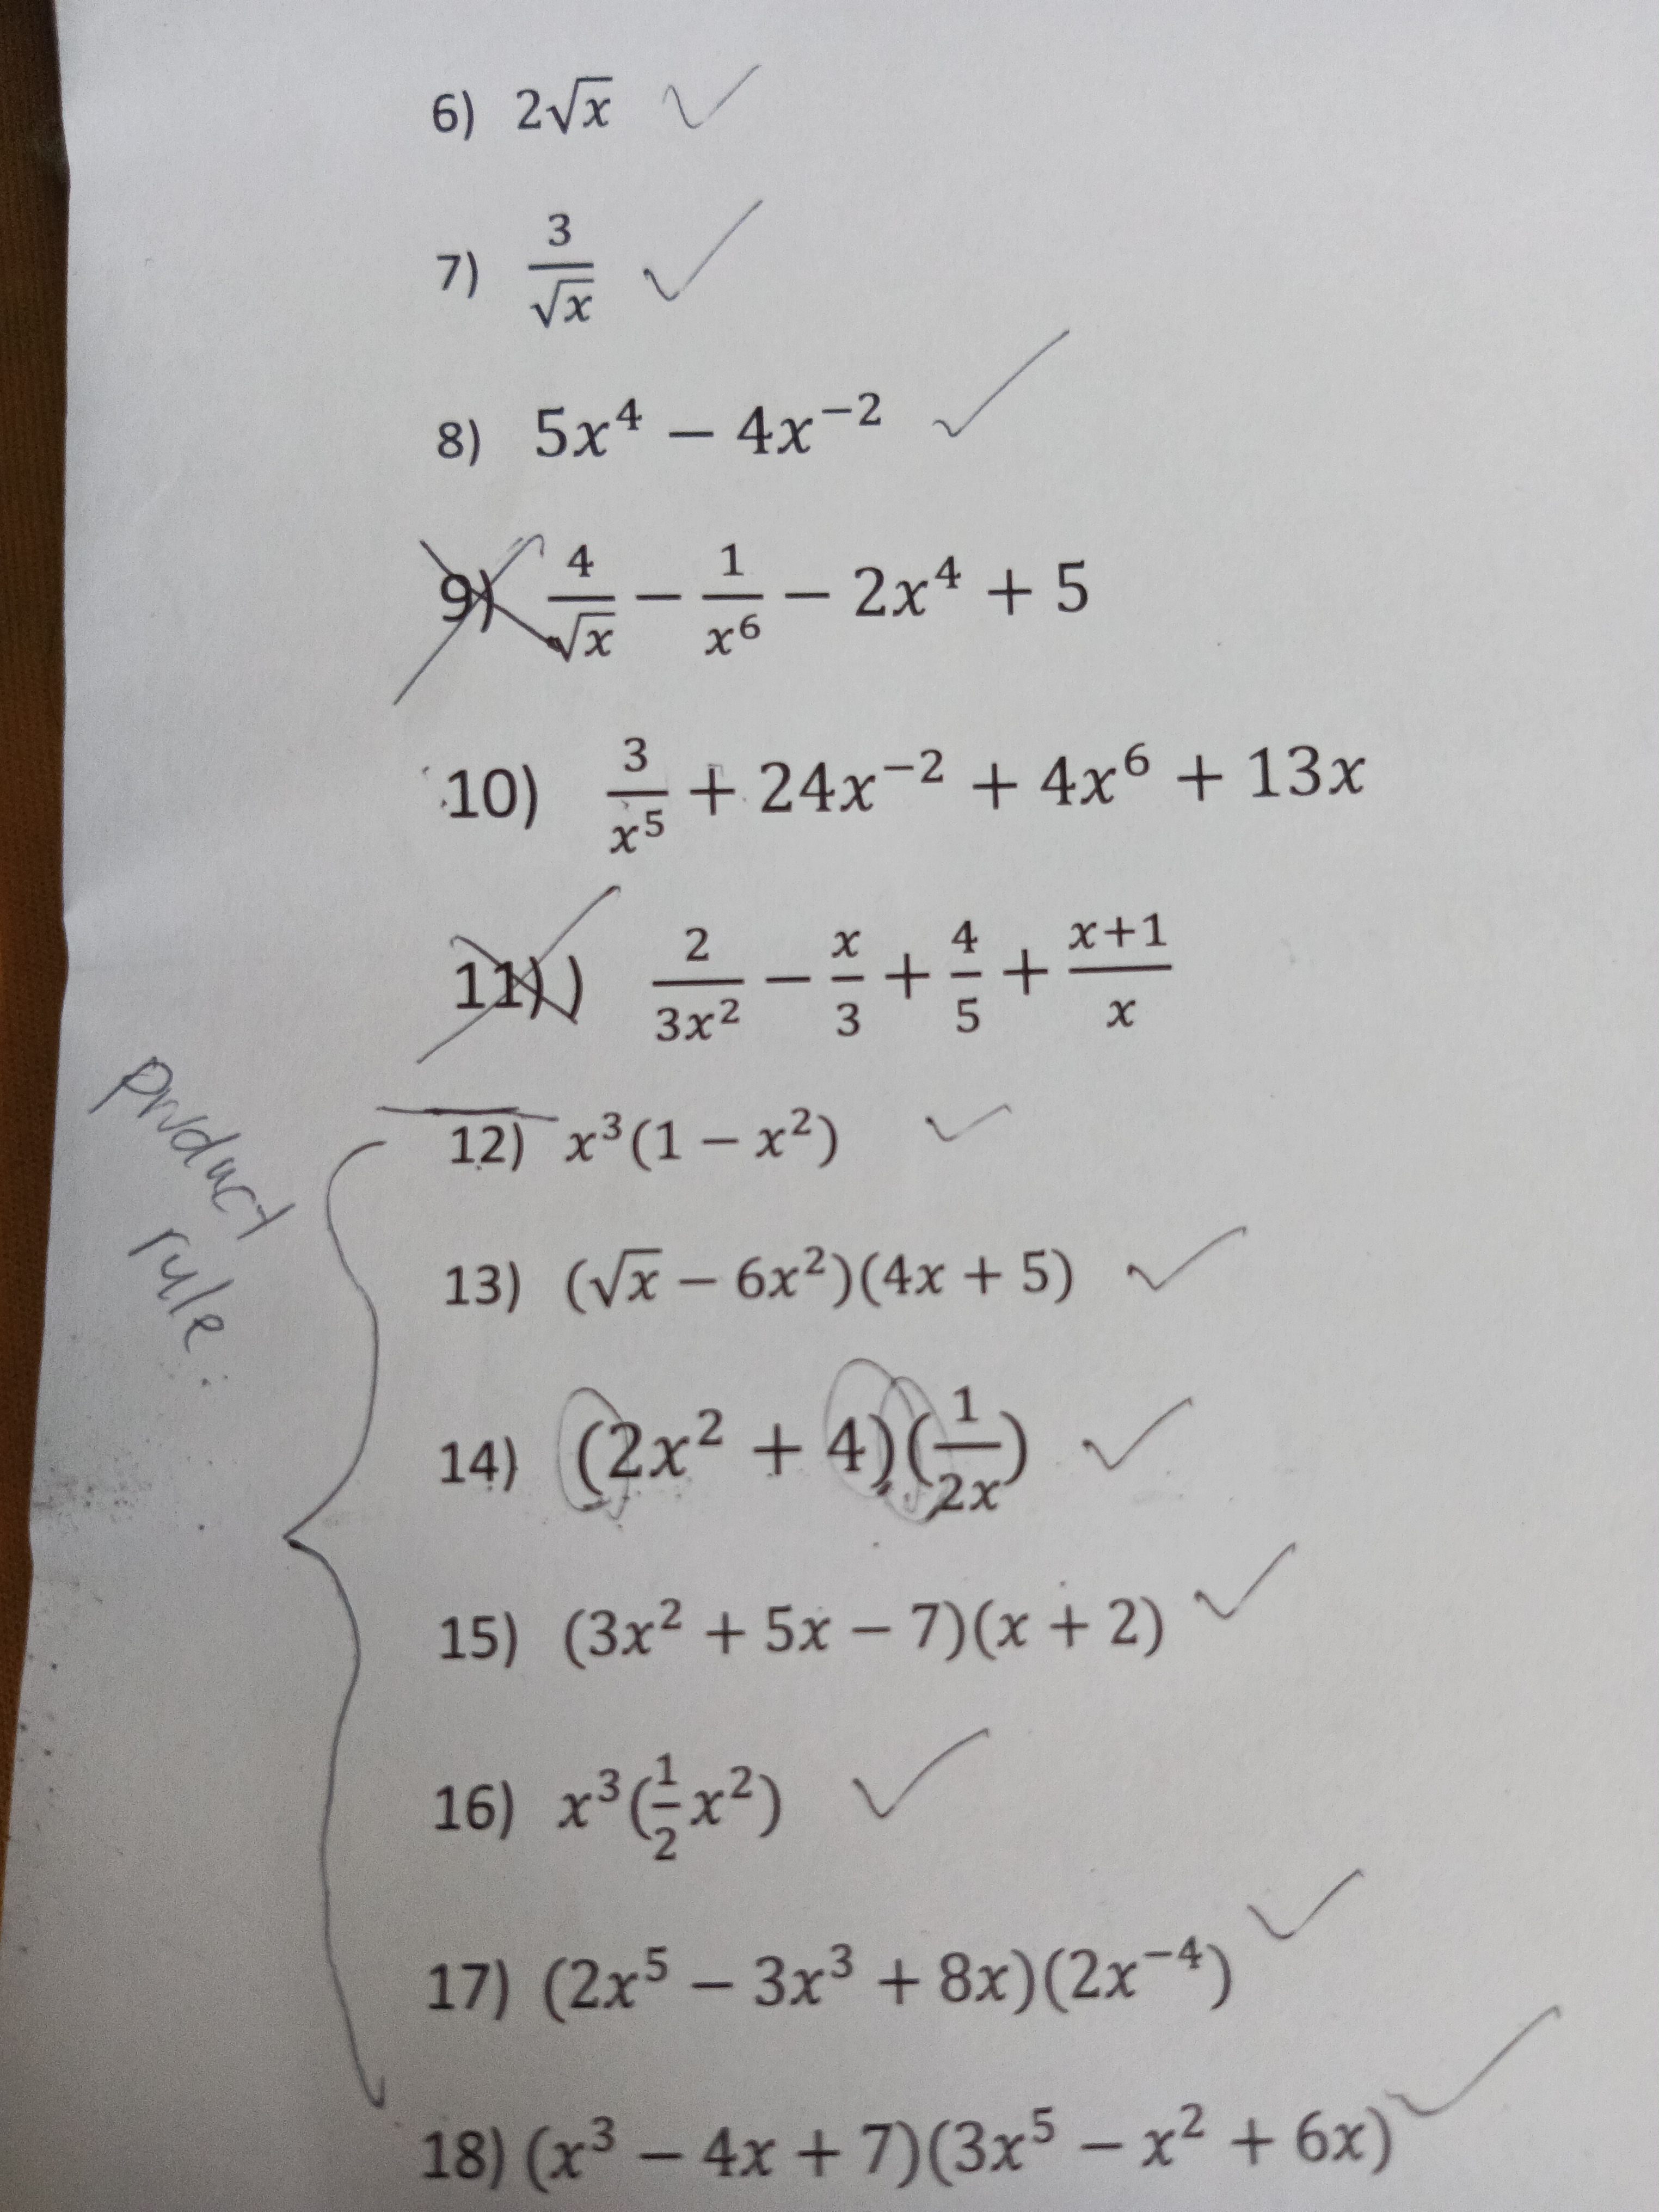 6) 2√x ✓
7) 3/√x ✓
8) 5x⁴ − 4x⁻² ✓
9) 4/√x − 1/x⁶ − 2x⁴ + 5
10) 3/x⁵ + 24x⁻² + 4x⁶ + 13x
11)) 2/3x² − x/3 + 4/5 + x+1/x
product rule:
12) x³(1 − x²) ✓
13) (√x − 6x²)(4x + 5) ✓
14) (2x² + 4)(1/2x) ✓
15) (3x² + 5x − 7)(x + 2) ✓
16) x³(1/2 x²) ✓
17) (2x⁵ − 3x³ + 8x)(2x⁻⁴) ✓
18) (x³ − 4x + 7)(3x⁵ − x² + 6x) ✓